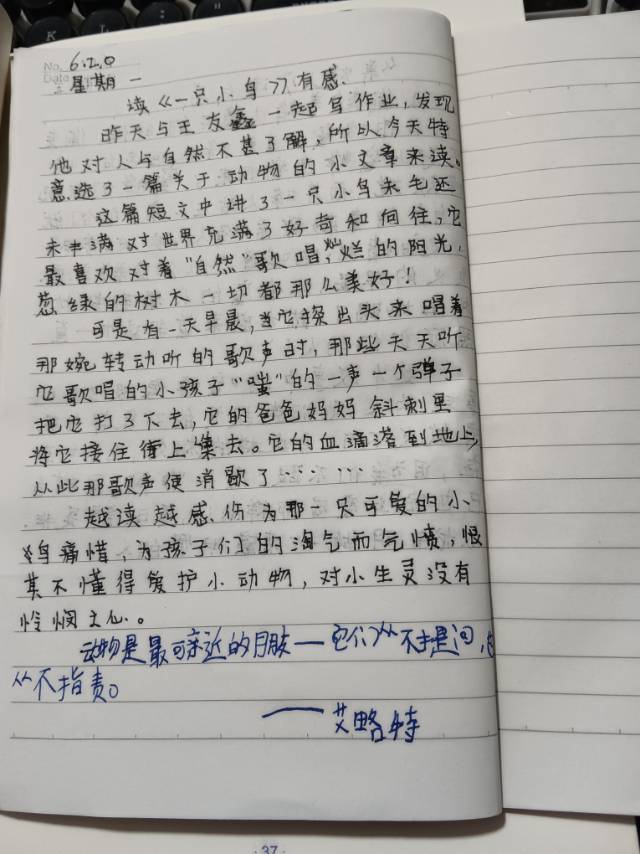 No. 6.20
Date 星期一
读《一只小鸟》有感.
昨天与王友鑫一起写作业,发现
他对人与自然不甚了解,所以今天特
意选了一篇关于动物的小文章来读。
这篇短文中讲了一只小鸟未毛还
未丰满对世界充满了好奇和向往,它
最喜欢对着"自然"歌唱,灿烂的阳光,
葱绿的树木一切都那么美好!
可是有一天早晨,当它探出头来唱着
那婉转动听的歌声时,那些天天听
它歌唱的小孩子"嗤"的一声一个弹子
把它打了下去,它的爸爸妈妈斜刺里
将它接住衔上集去。它的血滴落到地上,
从此那歌声便消歇了……
越读越感伤为那一只可爱的小
鸟痛惜,为孩子们的淘气而气愤,恨
其不懂得爱护小动物,对小生灵没有
怜悯之心。
动物是最可亲近的朋友——它们从不提问,也
从不指责。
——艾略特
K
L
37